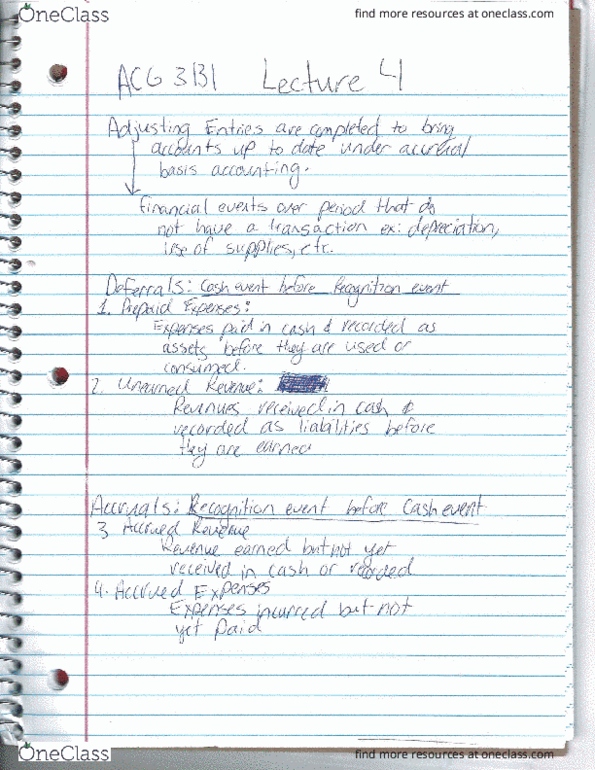 OneClass
find more resources at oneclass.com
ACG 3131 Lecture 4
Adjusting Entries are completed to bring
accounts up to date under accrual
basis accounting.
Financial events over period that do
not have a transaction ex: depreciation,
use of supplies, etc.
Deferrals: Cash event before Recognition event
1. Prepaid Expenses:
Expenses paid in cash & recorded as
assets before they are used or
consumed.
2. Unearned Revenue:
Revenues received in cash &
recorded as liabilities before
they are earned
Accruals: Recognition event before Cash event
3 Accrued Revenue
Revenue earned but not yet
received in cash or recorded
4. Accrued Expenses
Expenses incurred but not
yet paid
OneClass
find more resources at oneclass.com